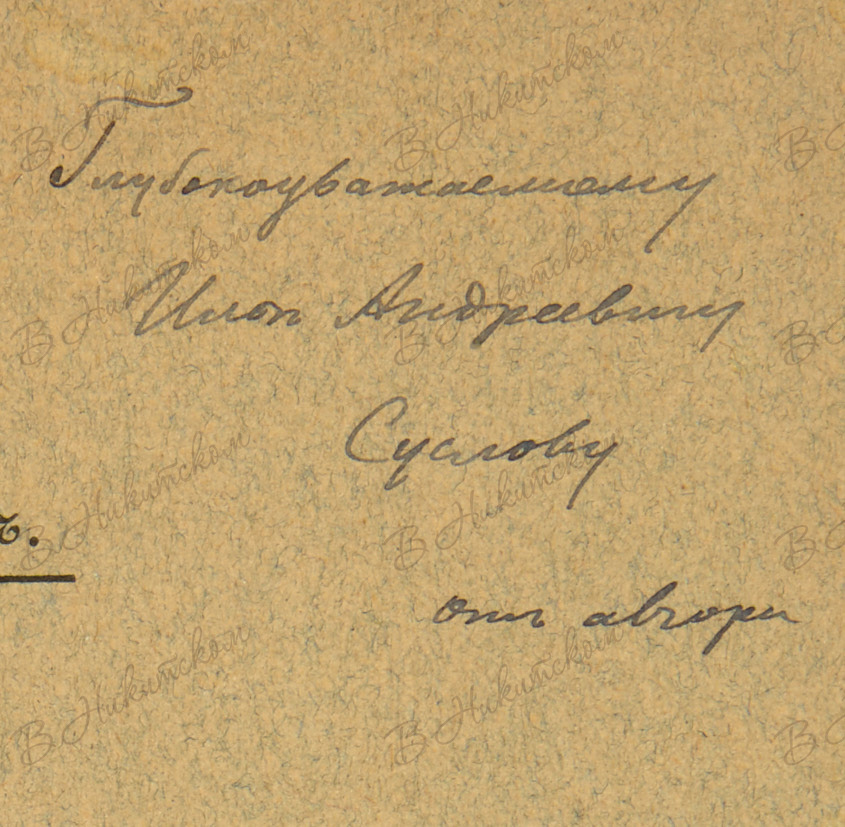 В Никитском В Никитском В
Глубокоуважаемому
В Никитском В Никитском В
Ильѣ Андреевичу
Суслову
В Никитском В Никитском В
ъ.
отъ автора
В Никитском В Никитском В